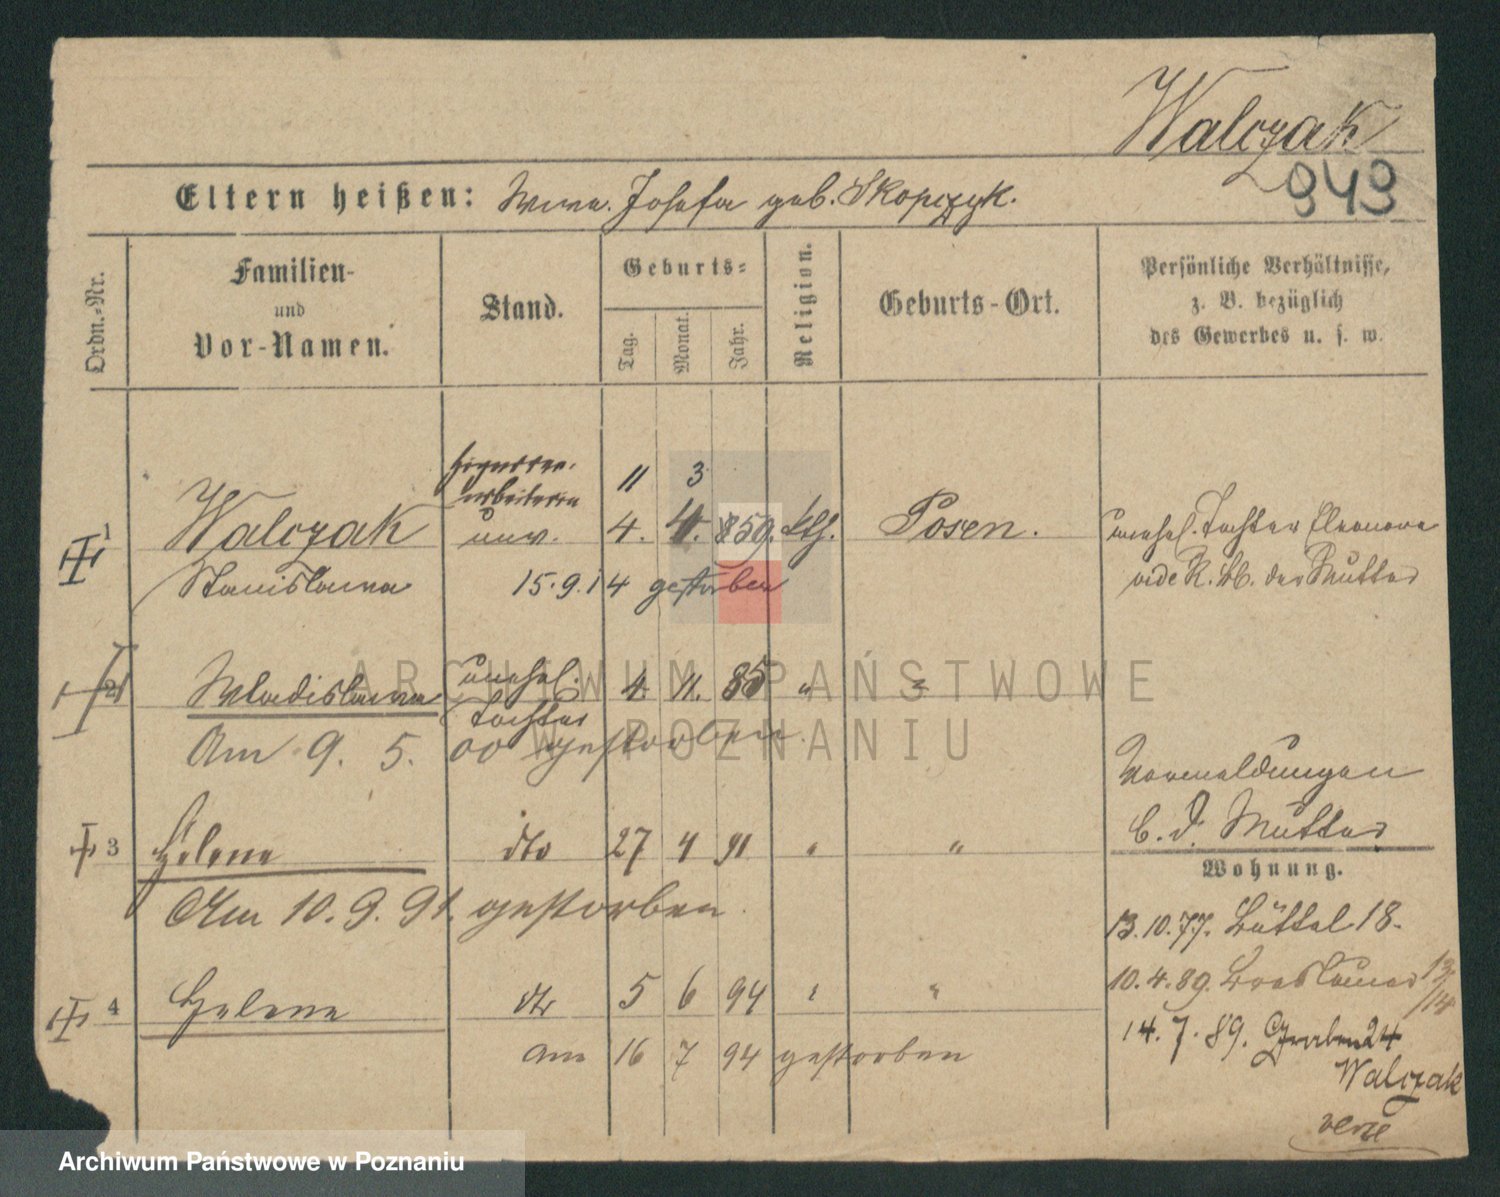 Walczak
943
Eltern heißen: Wwe. Josefa geb. Skopczyk.
Ordn.-Nr.
Familien-
und
Vor-Namen.
Stand.
Geburts-
Tag.
Monat.
Jahr.
Religion.
Geburts-Ort.
Persönliche Verhältnisse,
z. B. bezüglich
des Gewerbes u. s. w.
Cigarren-
arbeiterin 11 3
1 Walczak unv. 4. 4. 859. kth. Posen. unehel. Tochter Eleonore
Stanislawa 15.9.14 gestorben vide R. Bb. der Mutter
2 Wladislawa unehel. 4. 11. 85 " "
Tochter
Am 9. 5. 00 gestorben.
Vormeldungen
b. d. Mutter
3 Helene dto 27 4 91 " "
Wohnung.
Am 10. 9. 91. gestorben.
13.10.77. Büttel 18.
4 Helene dto 5 6 94 " "
10.4.89. Breslauer 13/14
14.7.89. Graben 24
am 16 7 94 gestorben
Walczak
verte
ARCHIWUM PAŃSTWOWE
W POZNANIU
Archiwum Państwowe w Poznaniu